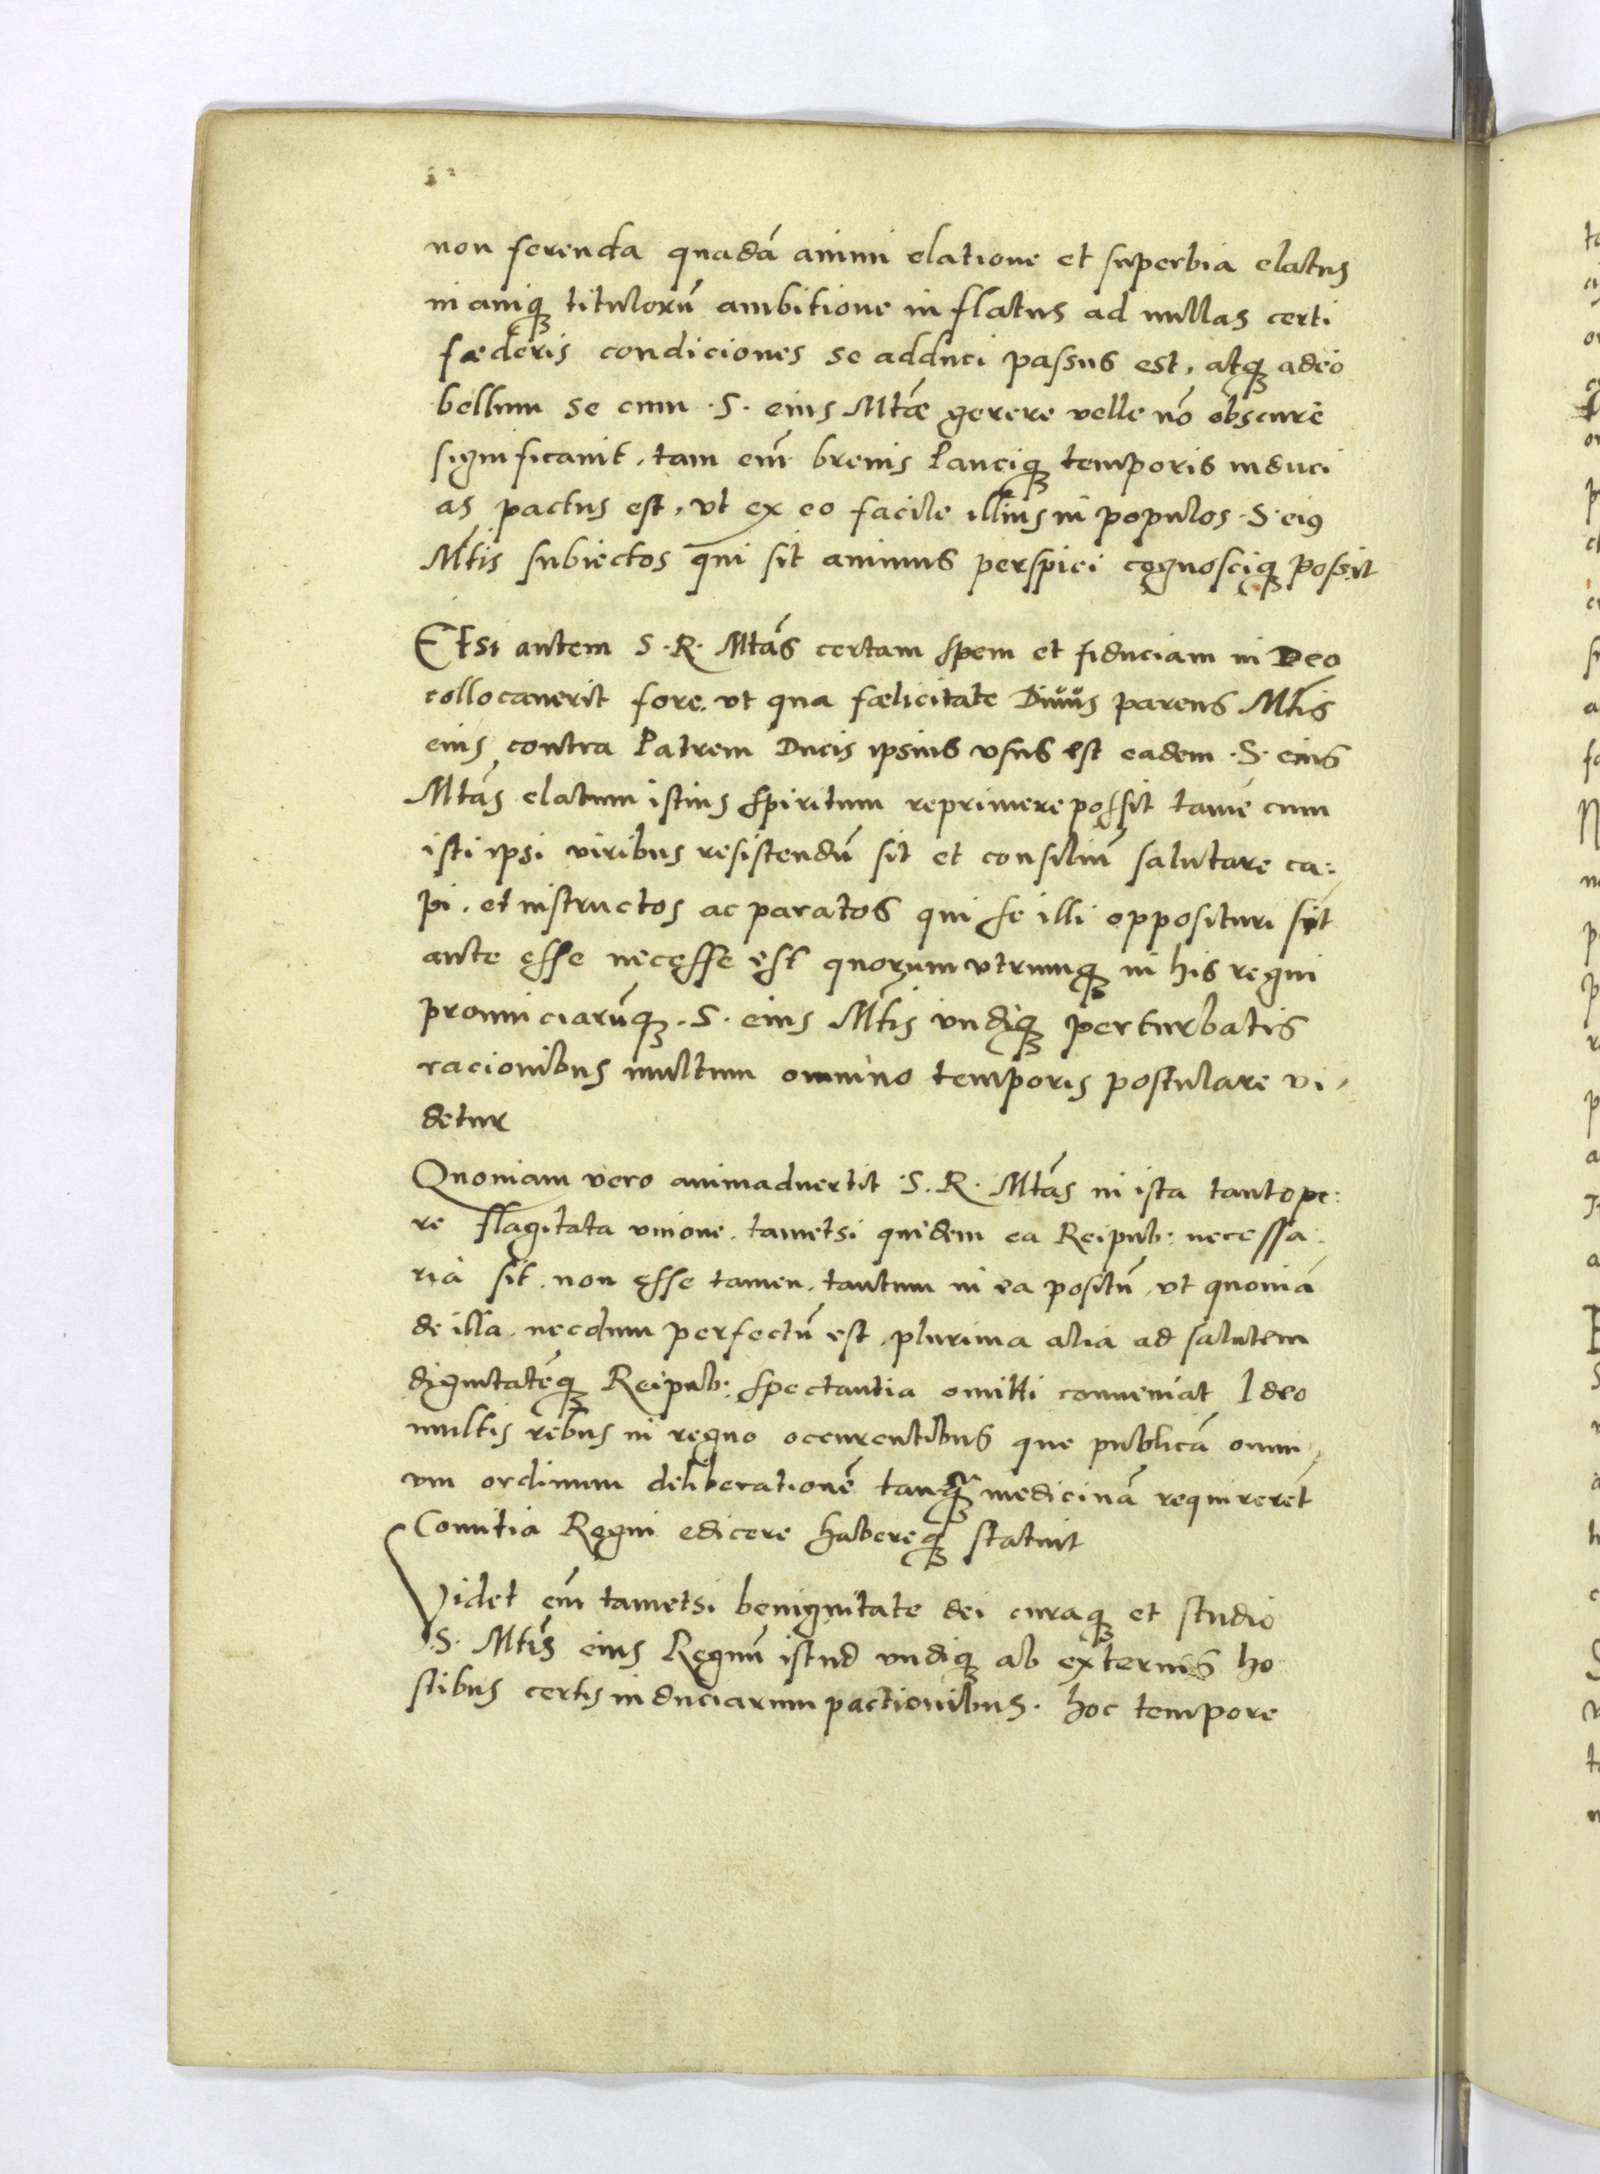 non ferenda quadā animi elatione et superbia elatus
inaniq; titulorū ambitione inflatus ad nullas certi
fæderis condiciones se adduci passus est, atq; adeo
bellum se cum .S. eius Mtæ gerere velle nō obscurè
significauit, tam em̄ breuis Pauciq; temporis induci
as pactus est, vt ex eo facile illius in populos .S. eiꝰ
Mtis subiectos qui sit animus perspici cognosciq; possit
Etsi autem S. R. Mtās certam spem et fiduciam in Deo
collocauerit fore. vt qua fælicitate Diuus parens Mtis
eius contra Patrem Ducis ipsius vsus est eadem .S. eius
Mtās elatum istius spiritum reprimere possit tamē cum
isti ipsi viribus resistendū sit et consiliū salutare ca:
pi. et instructos ac paratos qui se illi opposituri sīt
ante esse necesse est quorum vtrumq; in his regni
prouinciarūq; .S. eius Mtis vndiq; perturbatis
racionibus multum omnino temporis postulare vi,
detur
Quoniam vero animaduertit .S. R. Mtās in ista tantope:
re flagitata vnione. tametsi quidem ea Reipub: necessa:
ria sit. non esse tamen. tantum in ea positū, vt quoniā
de illa. necdum perfectū est, plurima alia ad salutem
dignitatēq; Reipub: spectantia omitti conueniat Ideo
multis rebus in regno occurentibus que publicā omni,
um ordinum deliberationē tanq; medicinā requirerēt
Comitia Regni edicere habereq; statuit
Videt em̄ tametsi benignitate dei curaq; et studio
.S. Mtis eius Regnū istud vndiq; ab externis ho
stibus certis induciarum pactionibus. hoc tempore